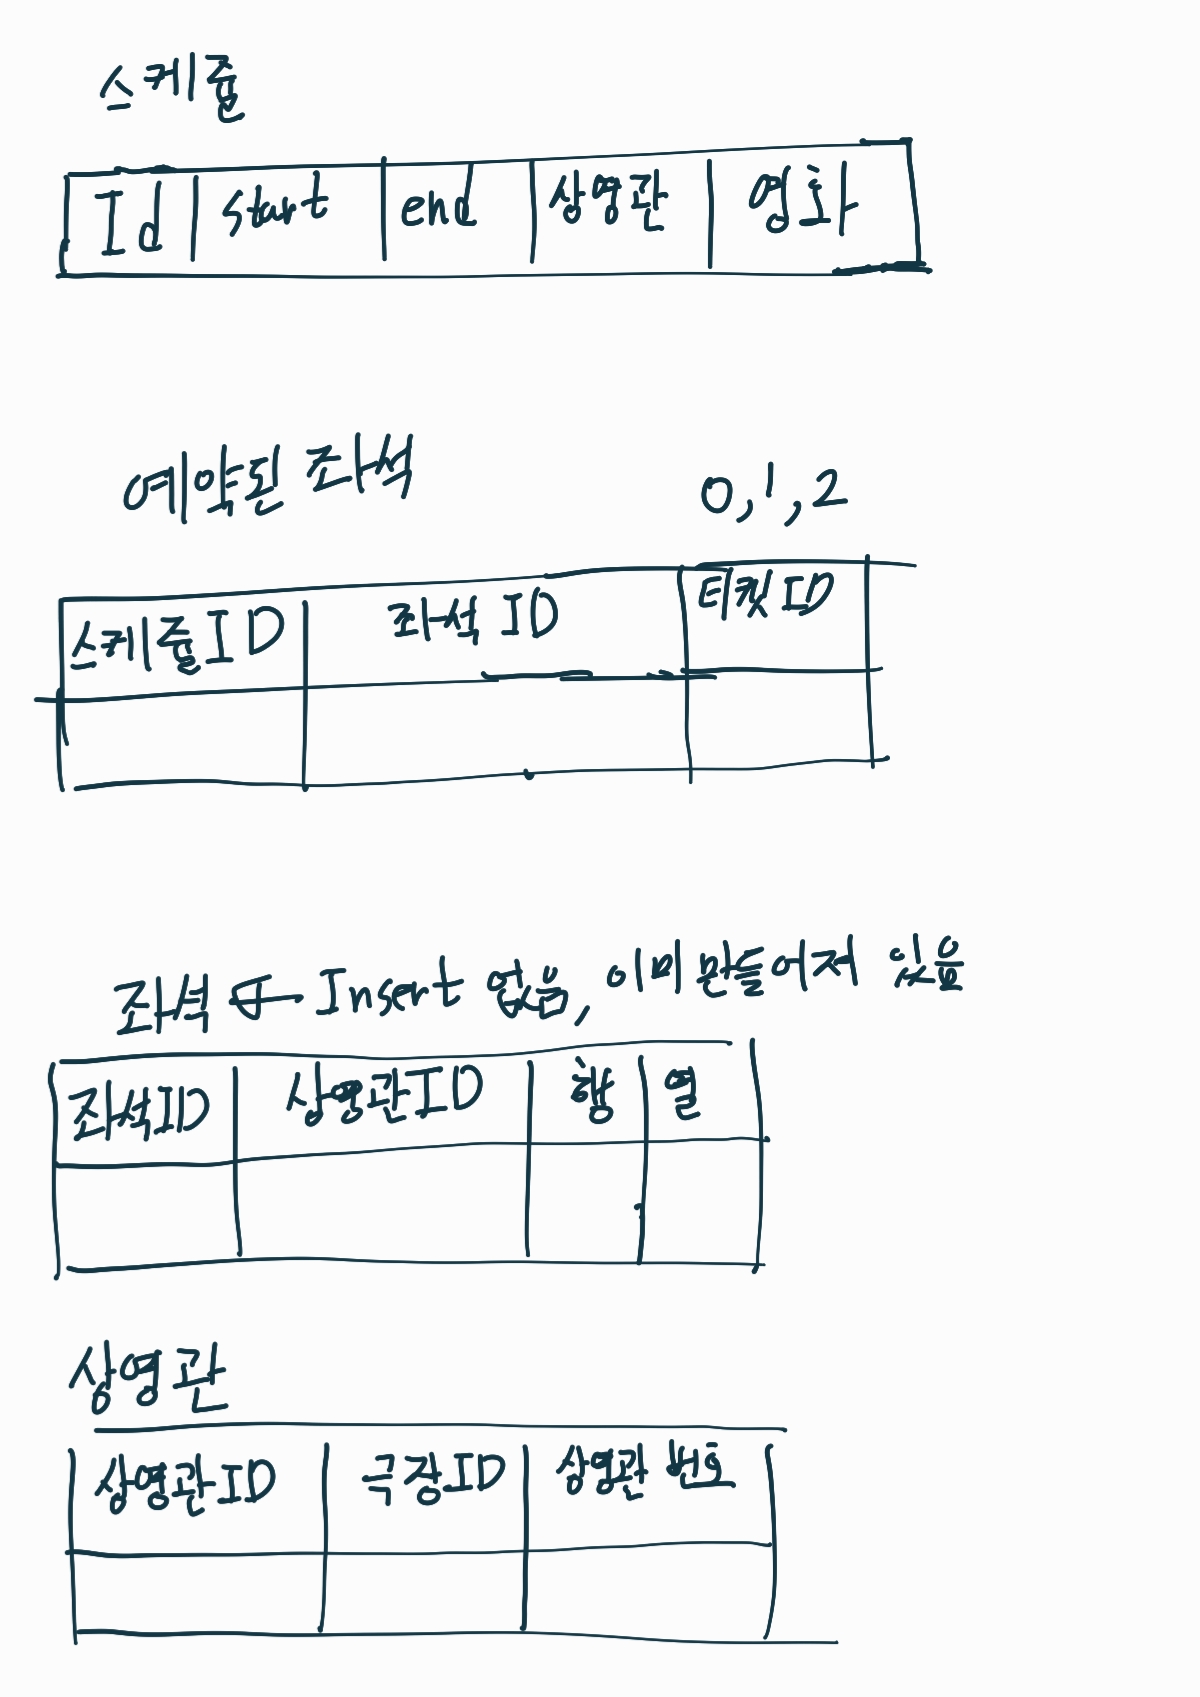 스케줄
Id start end 상영관 영화
예약된 좌석 0, 1, 2
스케줄ID 좌석 ID 티켓ID
좌석 ← Insert 없음, 이미 만들어져 있음
좌석ID 상영관ID 행 열
상영관
상영관ID 극장ID 상영관 번호